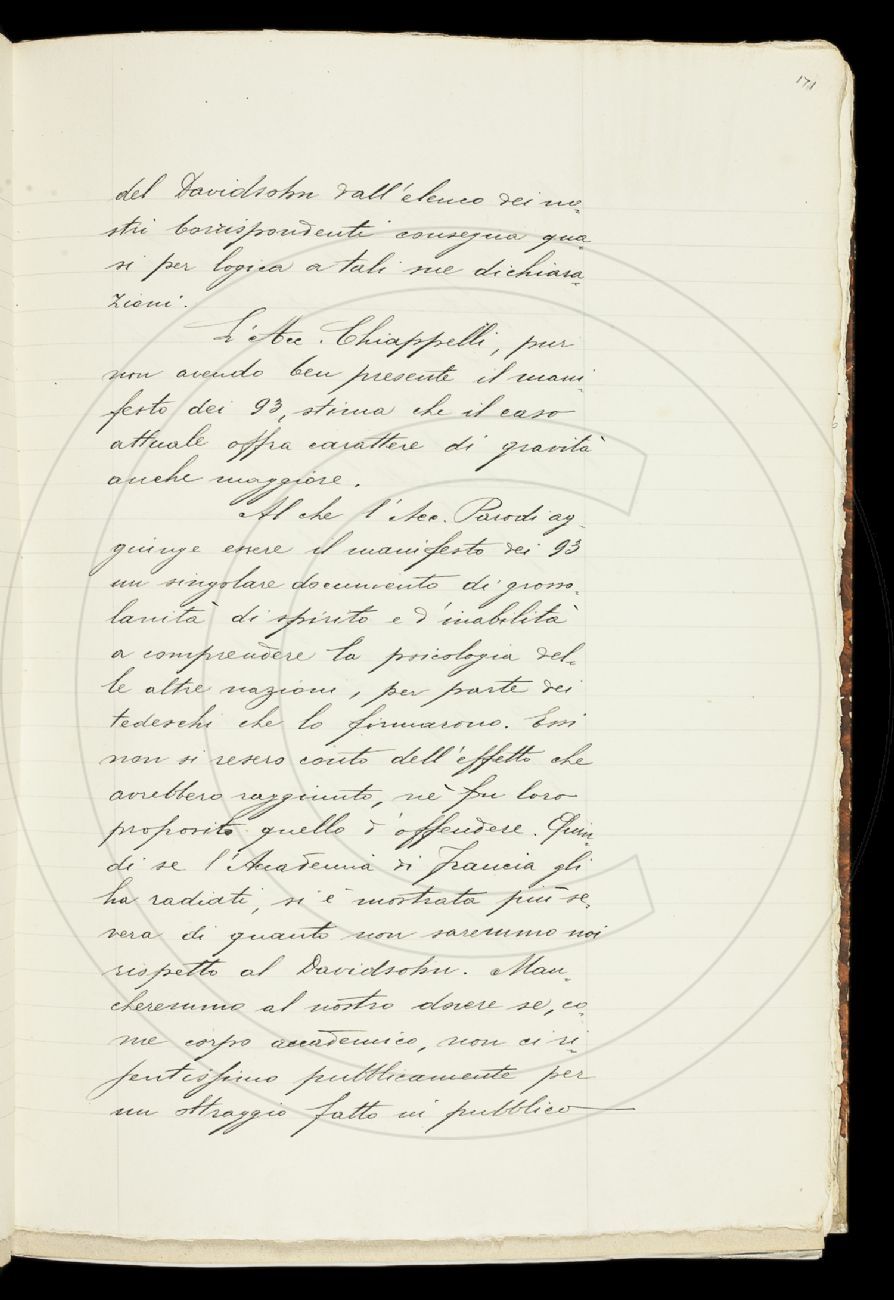 171
del Davidsohn dall'elenco dei no-
stri Corrispondenti consegua qua-
si per logica a tali sue dichiara-
zioni.
L'Acc. Chiappelli, pur
non avendo ben presente il mani-
festo dei 93, stima che il caso
attuale offra carattere di gravità
anche maggiore.
Al che l'Acc. Parodi ag-
giunge essere il manifesto dei 93
un singolare documento di grosso-
lanità di spirito e d'inabilità
a comprendere la psicologia del-
le altre nazioni, per parte dei
tedeschi che lo firmarono. Essi
non si resero conto dell'effetto che
avrebbero raggiunto, nè fu loro
proposito quello d'offendere. Quin-
di se l'Accademia di Francia gli
ha radiati, si è mostrata più se-
vera di quanto non saremmo noi
rispetto al Davidsohn. Man-
cheremmo al nostro dovere se, co-
me corpo accademico, non ci ri-
sentissimo pubblicamente per
un oltraggio fatto in pubblico